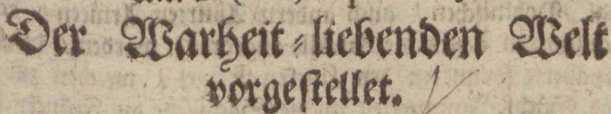 Der Warheit-liebenden Welt
vorgestellet.